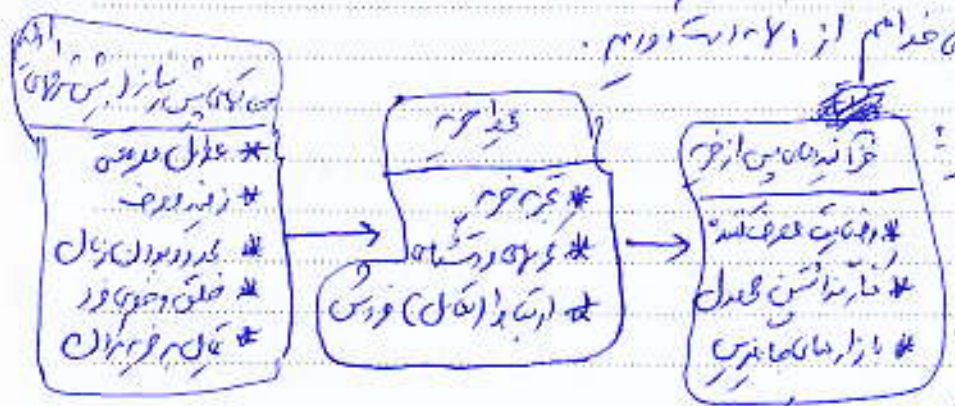 خواهم از بالا بدست آوریم.
حالتهای پیش نیاز / پیش شرطهای
* عوامل موقعیتی
* زمینه مصرف
* محدود بودن زمان
* خلق و خوی فرد
* تمایل به خرید کردن
محیط خرید
* تجربه خرید
* محرکهای فروشگاهی
* ارتباط (تقابل) فروش
فرآیندهای پس از خرید
* رضایت مصرف کننده
* کنار گذاشتن محصول
* بازارهای جایگزین